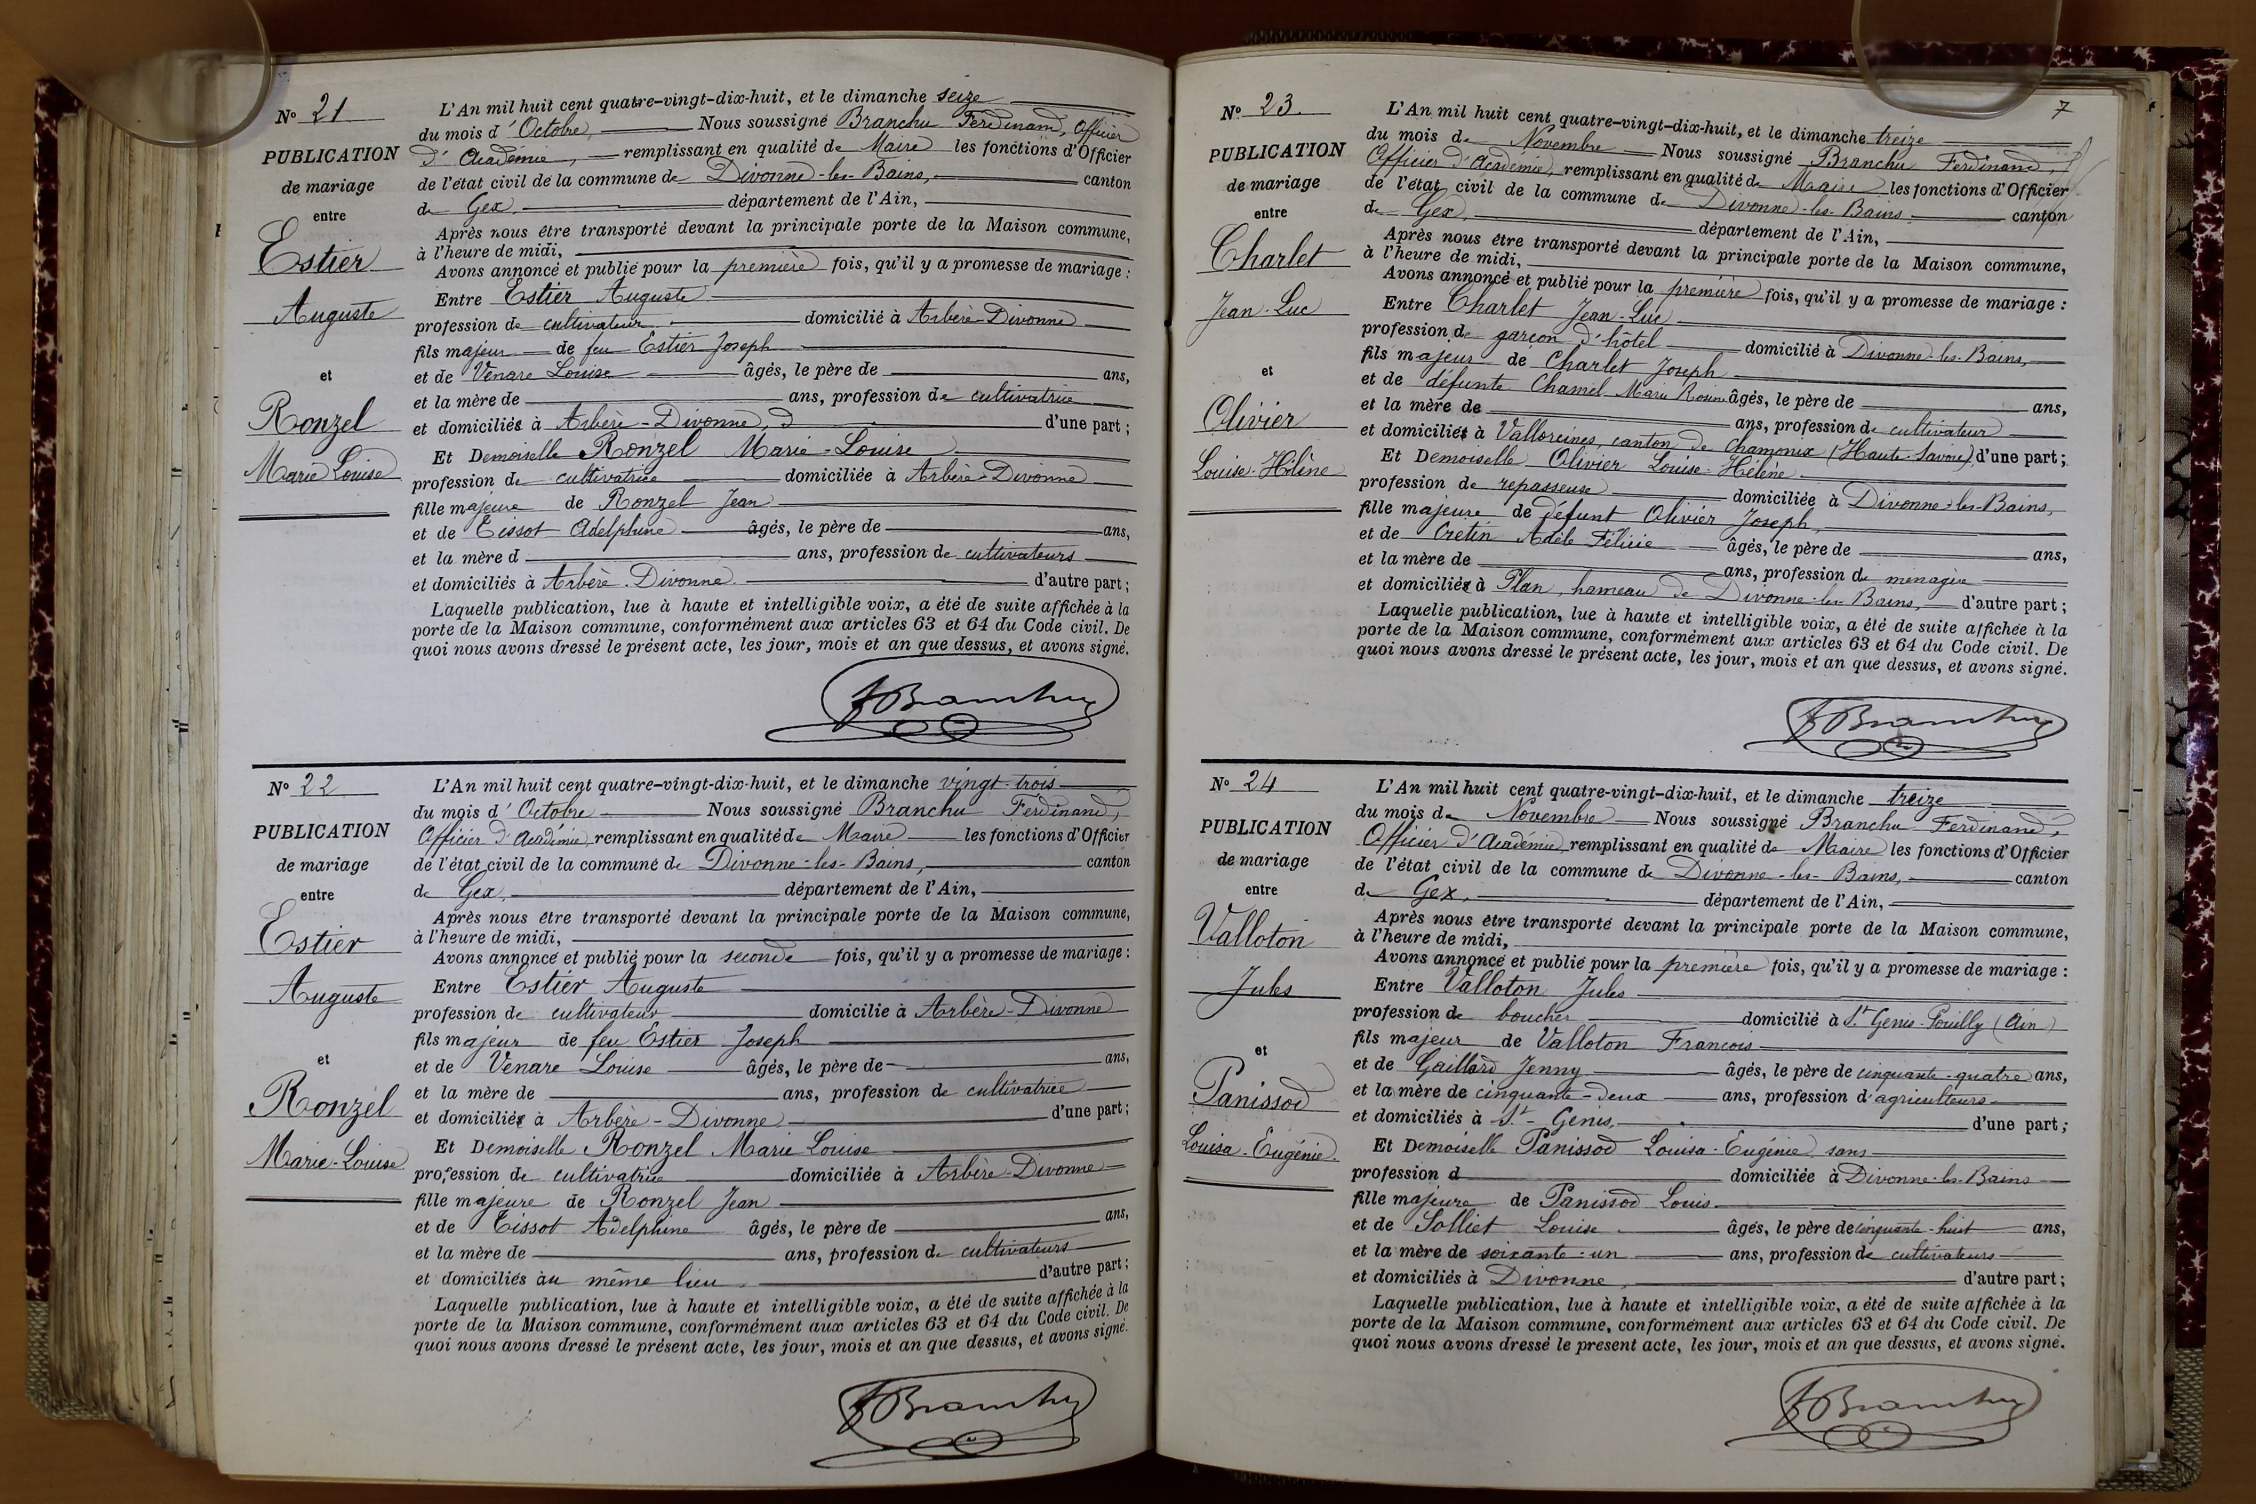 N° 21
PUBLICATION
de mariage
entre
Estier
Auguste
et
Ronzel
Marie Louise
L'An mil huit cent quatre-vingt-dix-huit, et le dimanche seize
du mois d'Octobre, Nous soussigné Branchu Ferdinand, Officier
d'Académie, remplissant en qualité de Maire les fonctions d'Officier
de l'état civil de la commune de Divonne-les-Bains, canton
de Gex, département de l'Ain,
Après nous être transporté devant la principale porte de la Maison commune,
à l'heure de midi,
Avons annoncé et publié pour la première fois, qu'il y a promesse de mariage :
Entre Estier Auguste
profession de cultivateur domicilié à Arbère-Divonne
fils majeur de feu Estier Joseph
et de Venare Louise âgés, le père de ans,
et la mère de ans, profession de cultivatrice
et domiciliés à Arbère-Divonne, d'une part ;
Et Demoiselle Ronzel Marie-Louise
profession de cultivatrice domiciliée à Arbère-Divonne
fille majeure de Ronzel Jean
et de Tissot Adelphine âgés, le père de ans,
et la mère d ans, profession de cultivateurs
et domiciliés à Arbère-Divonne. d'autre part ;
Laquelle publication, lue à haute et intelligible voix, a été de suite affichée à la
porte de la Maison commune, conformément aux articles 63 et 64 du Code civil. De
quoi nous avons dressé le présent acte, les jour, mois et an que dessus, et avons signé.
FBranchu
N° 22
PUBLICATION
de mariage
entre
Estier
Auguste
et
Ronzel
Marie-Louise
L'An mil huit cent quatre-vingt-dix-huit, et le dimanche vingt-trois
du mois d'Octobre Nous soussigné Branchu Ferdinand,
Officier d'Académie, remplissant en qualité de Maire les fonctions d'Officier
de l'état civil de la commune de Divonne-les-Bains, canton
de Gex, département de l'Ain,
Après nous être transporté devant la principale porte de la Maison commune,
à l'heure de midi,
Avons annoncé et publié pour la seconde fois, qu'il y a promesse de mariage :
Entre Estier Auguste
profession de cultivateur domicilié à Arbère-Divonne
fils majeur de feu Estier Joseph
et de Venare Louise âgés, le père de ans,
et la mère de ans, profession de cultivatrice
et domiciliés à Arbère-Divonne d'une part ;
Et Demoiselle Ronzel Marie Louise
profession de cultivatrice domiciliée à Arbère-Divonne
fille majeure de Ronzel Jean
et de Tissot Adelphine âgés, le père de ans,
et la mère de ans, profession de cultivateurs
et domiciliés au même lieu. d'autre part ;
Laquelle publication, lue à haute et intelligible voix, a été de suite affichée à la
porte de la Maison commune, conformément aux articles 63 et 64 du Code civil. De
quoi nous avons dressé le présent acte, les jour, mois et an que dessus, et avons signé.
FBranchu
7
N° 23.
PUBLICATION
de mariage
entre
Charlet
Jean-Luc
et
Olivier
Louise-Hélène
L'An mil huit cent quatre-vingt-dix-huit, et le dimanche treize
du mois de Novembre Nous soussigné Branchu Ferdinand,
Officier d'Académie, remplissant en qualité de Maire les fonctions d'Officier
de l'état civil de la commune de Divonne-les-Bains, canton
de Gex, département de l'Ain,
Après nous être transporté devant la principale porte de la Maison commune,
à l'heure de midi,
Avons annoncé et publié pour la première fois, qu'il y a promesse de mariage :
Entre Charlet Jean-Luc
profession de garçon d'hôtel domicilié à Divonne-les-Bains,
fils majeur de Charlet Joseph
et de défunte Chamel Marie Rosine âgés, le père de ans,
et la mère de ans, profession de cultivateur
et domiciliés à Vallorcines, canton de Chamonix (Haute-Savoie) d'une part ;
Et Demoiselle Olivier Louise-Hélène
profession de repasseuse domiciliée à Divonne-les-Bains,
fille majeure de défunt Olivier Joseph,
et de Cretin Adèle Félicie âgés, le père de ans,
et la mère de ans, profession de ménagère
et domiciliés à Plan, hameau de Divonne-les-Bains, d'autre part ;
Laquelle publication, lue à haute et intelligible voix, a été de suite affichée à la
porte de la Maison commune, conformément aux articles 63 et 64 du Code civil. De
quoi nous avons dressé le présent acte, les jour, mois et an que dessus, et avons signé.
FBranchu
N° 24
PUBLICATION
de mariage
entre
Valloton
Jules
et
Panissod
Louisa-Eugénie.
L'An mil huit cent quatre-vingt-dix-huit, et le dimanche treize
du mois de Novembre Nous soussigné Branchu Ferdinand,
Officier d'Académie, remplissant en qualité de Maire les fonctions d'Officier
de l'état civil de la commune de Divonne-les-Bains, canton
de Gex, département de l'Ain,
Après nous être transporté devant la principale porte de la Maison commune,
à l'heure de midi,
Avons annoncé et publié pour la première fois, qu'il y a promesse de mariage :
Entre Valloton Jules
profession de boucher domicilié à St Genis-Pouilly (Ain)
fils majeur de Valloton François
et de Gaillard Jenny âgés, le père de cinquante-quatre ans,
et la mère de cinquante-deux ans, profession d'agriculteurs
et domiciliés à St-Genis, d'une part ;
Et Demoiselle Panissod Louisa-Eugénie sans
profession d domiciliée à Divonne-les-Bains
fille majeure de Panissod Louis
et de Solliet Louise âgés, le père de cinquante-huit ans,
et la mère de soixante-un ans, profession de cultivateurs
et domiciliés à Divonne, d'autre part ;
Laquelle publication, lue à haute et intelligible voix, a été de suite affichée à la
porte de la Maison commune, conformément aux articles 63 et 64 du Code civil. De
quoi nous avons dressé le présent acte, les jour, mois et an que dessus, et avons signé.
FBranchu